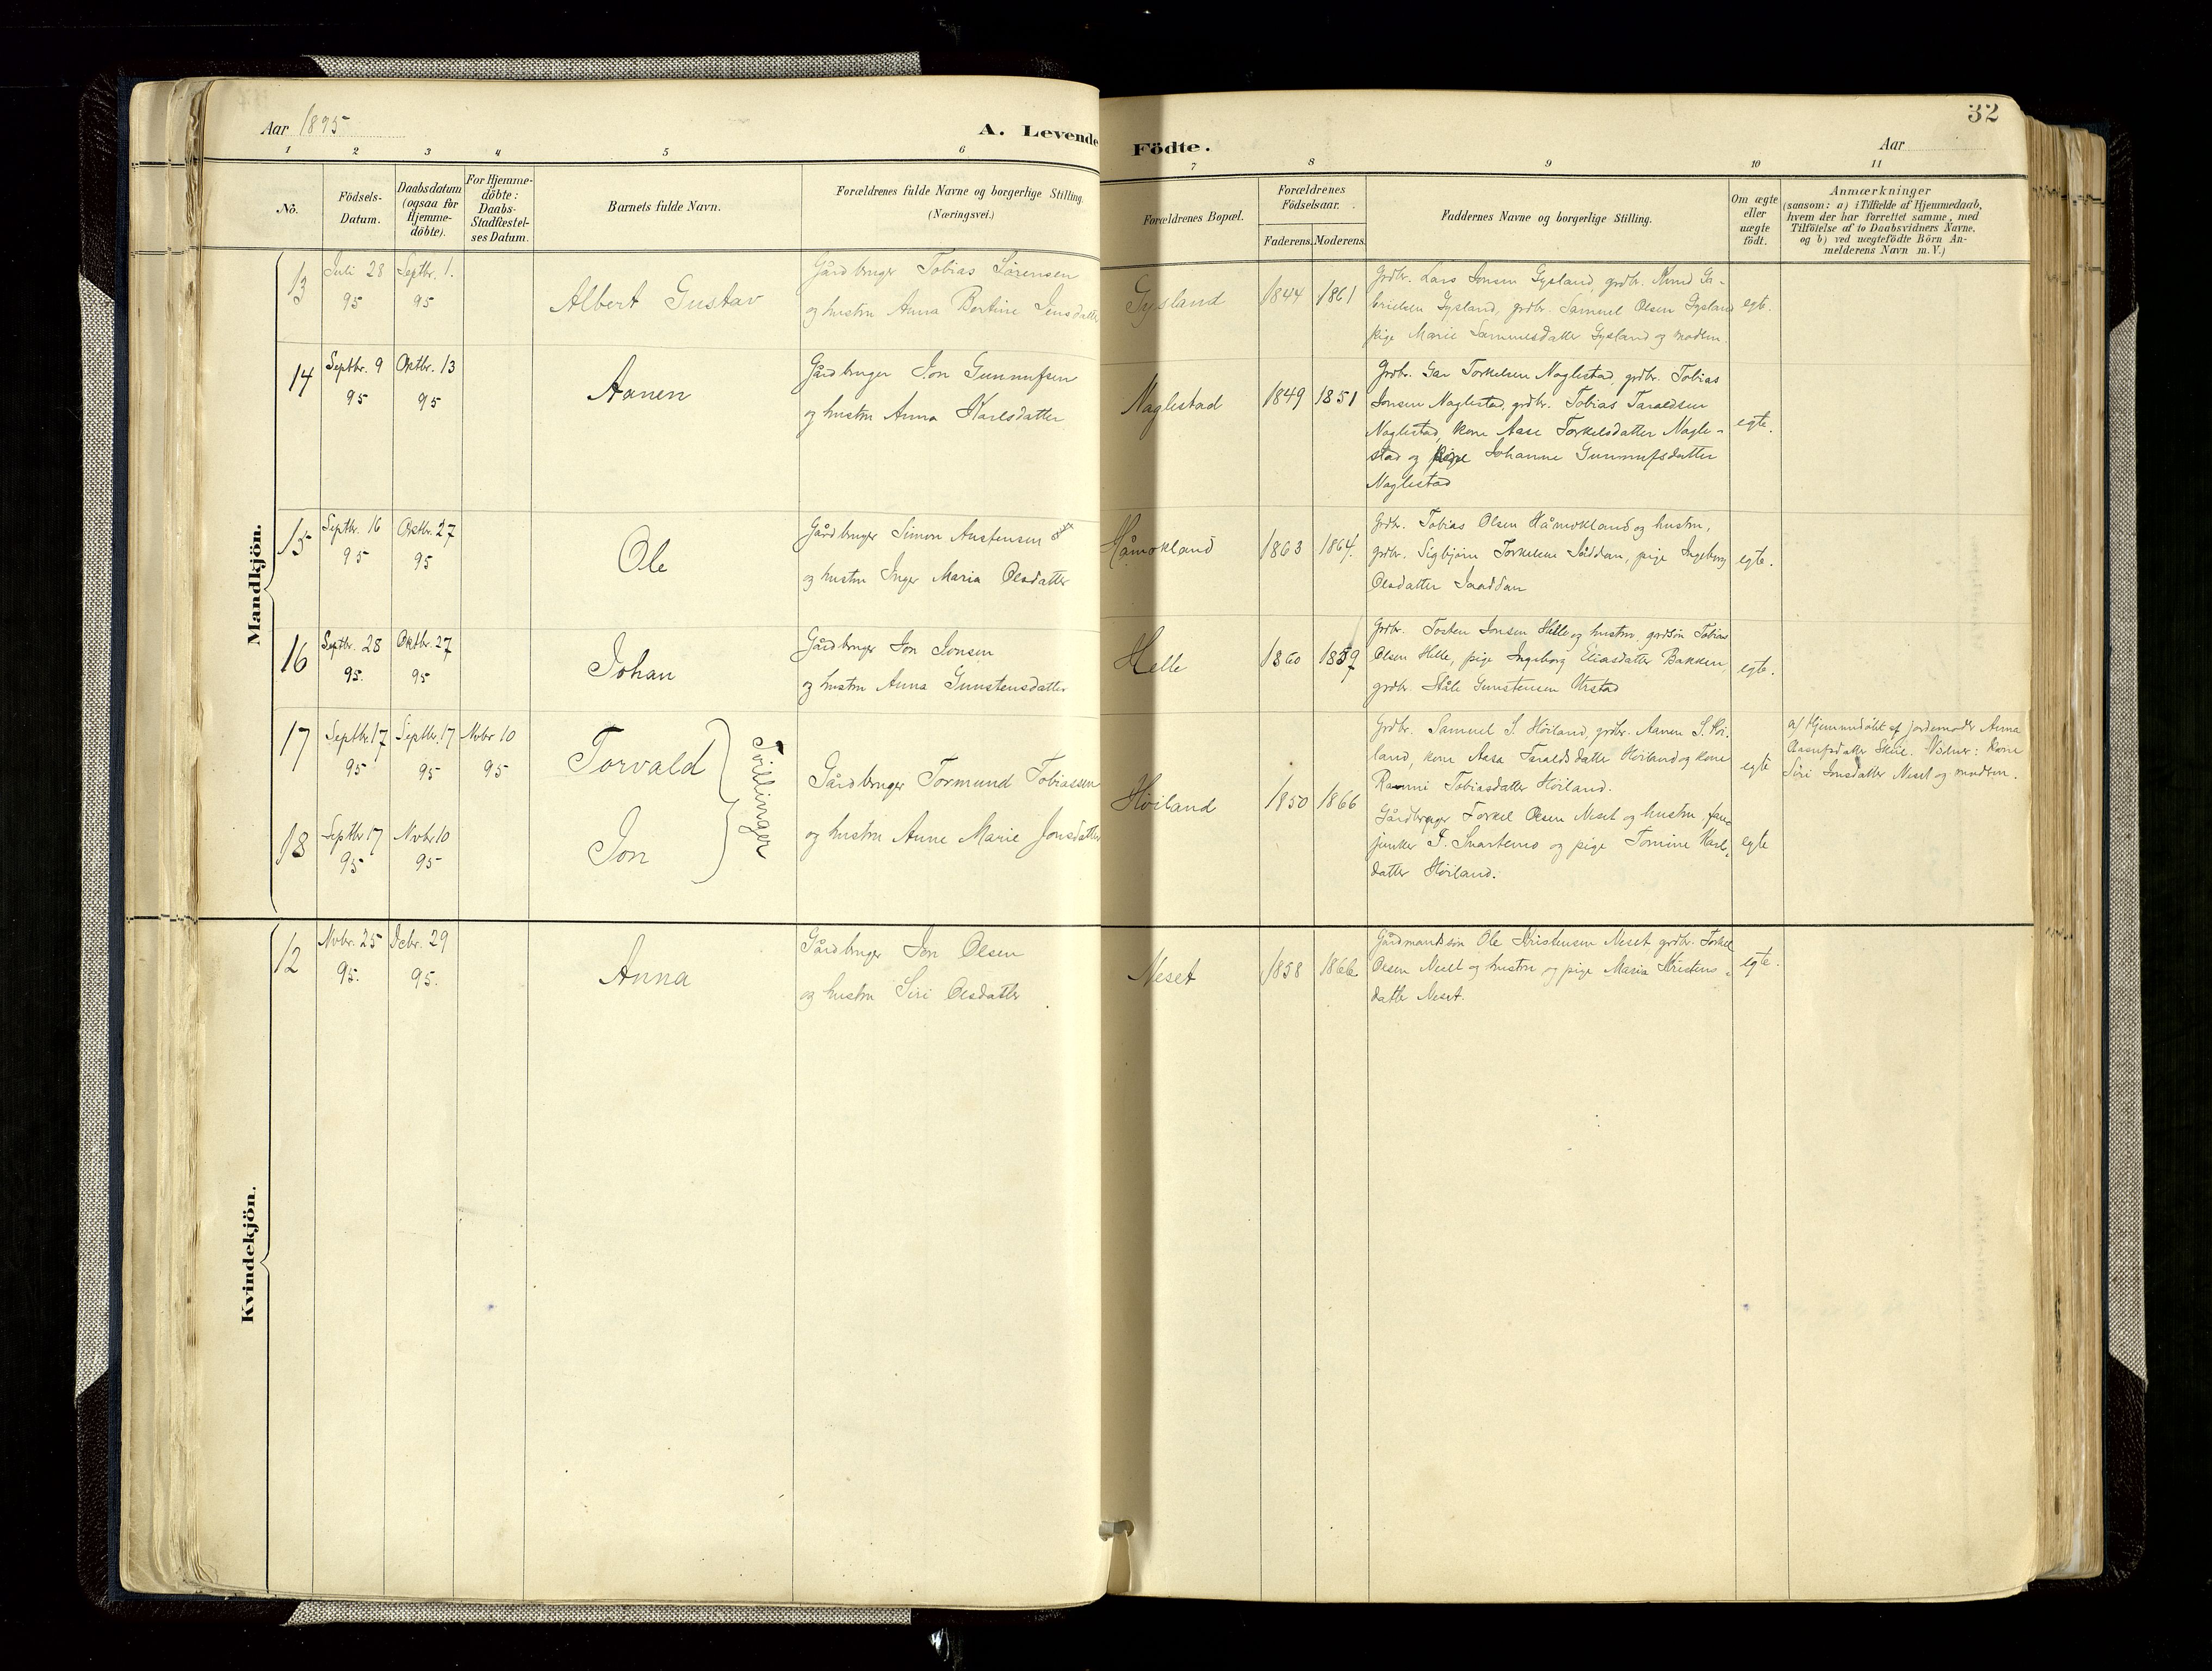 32
Aar 1895
A. Levende Födte.
Aar
1 2 3 4 5 6 7 8 9 10 11
No.
Födsels-
Datum.
Daabsdatum
(ogsaa for
Hjemme-
döbte).
For Hjemme-
döbte:
Daabs-
Stadfæstel-
ses Datum.
Barnets fulde Navn.
Forældrenes fulde Navne og borgerlige Stilling
(Næringsvei.)
Forældrenes Bopæl.
Forældrenes
Födselsaar.
Faderens. Moderens.
Faddernes Navne og borgerlige Stilling.
Om ægte
eller
uægte
födt.
Anmærkninger
(saasom: a) i Tilfælde af Hjemmedaab,
hvem der har forrettet samme, med
Tilföielse af to Daabsvidners Navne,
og b) ved uægtefödte Börn An-
melderens Navn m.V.)
Mandkjön.
13
Juli 28
95
Septbr. 1.
95
Albert Gustav
Gårdbruger Tobias Sørensen
og hustru Anna Bertine Jensdatter
Gysland
1844
1861
Grdbr. Lars Jonsen Gysland, grdbr. Knud Ga-
brielsen Gysland, grdbr. Samuel Olsen Gysland
pige Marie Sammuelsdatter Gysland og modren.
egt.
14
Septbr. 9
95
Oktbr. 13
95
Aanen
Gårdbruger Jon Gunnufsen
og hustru Anna Karlsdatter
Naglestad
1849
1851
Grdbr. Torkelsen Naglestad, grdbr. Tobias
Jonsen Naglestad, grdbr. Tobias Taraldsen
Naglestad, kone Aase Torkelsdatter Nagle-
stad og pige Johanne Gunnufsdatter
Naglestad
egte.
15
Septbr. 16
95
Oktbr. 27
95
Ole
Gårdbruger Simon Austensen
og hustru Inger Maria Olsdatter
Håmokland
1863
1864.
Grdbr. Tobias Olsen Håmokland og hustru,
grdbr. Sigbjørn Torkelsen Såddan, pige Ingeborg
Olsdatter Saaddan
egte.
16
Septbr. 28
95.
Oktbr. 27
95
Johan
Gårdbruger Jon Jonsen
og hustru Anna Gunstensdatter
Helle
1860
1859
Grdbr. Tosten Jonsen Helle og hustru, grdsøn Tobias
Olsen Helle, pige Ingeborg Eliasdatter Bakken,
grdbr. Ståle Gunstensen Urstad
egte.
17
Septbr. 17
95
Septbr. 17
95
Novbr 10
95
Torvald
Tvillinger
Gårdbruger Tormund Tobiassen
og hustru Anne Marie Jonsdatter
Høiland
1850
1866
Grdbr. Samuel S. Høiland, grdbr. Aanen S. Høi-
land, kone Aasa Taraldsdatter Høiland og kone
Ranni Tobiasdatter Høiland.
egte
a/ Hjemmedøbt af jordemoder Anna
Skeie. Vidner: Kone
Siri Jonsdatter Neset og modren.
18
Septbr 17
95
Novbr 10
95
Jon
Gårdbruger Torkel Olsen Neset og hustru, fan-
junker J. Snartemo og pige Tomine Karl-
datter Høiland.
egte
Kvindekjön.
12
Nvbr. 25
95.
Decbr. 29
95.
Anna
Gårdbruger Jon Olsen
og hustru Siri Olsdatter
Neset
1858
1866
Gårdmandssøn Ole Kristensen Neset grdbr. Torkel
Olsen Neset og hustru og pige Maria Kristens-
datter Neset.
egte.